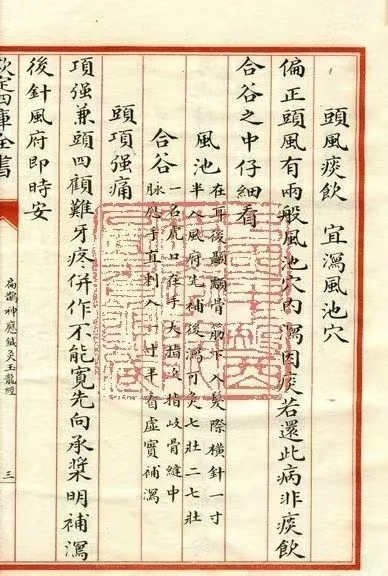 頭風痰飲　宜瀉風池穴
偏正頭風有兩般風池穴內瀉因痰若還此病非痰飲
合谷之中仔細看
風池　在耳後顳顬骨筋下入髮際橫針一寸
半入風府先補後瀉可灸七壯二七壯
合谷　一名虎口在手大指次指歧骨縫中
脉應手直刺入一寸半看虛實補瀉
頭項强痛
項强兼頭四顧難牙疼併作不能寛先向承漿明補瀉
後針風府即時安
欽定四庫全書
扁鵲神應鍼灸玉龍經
三